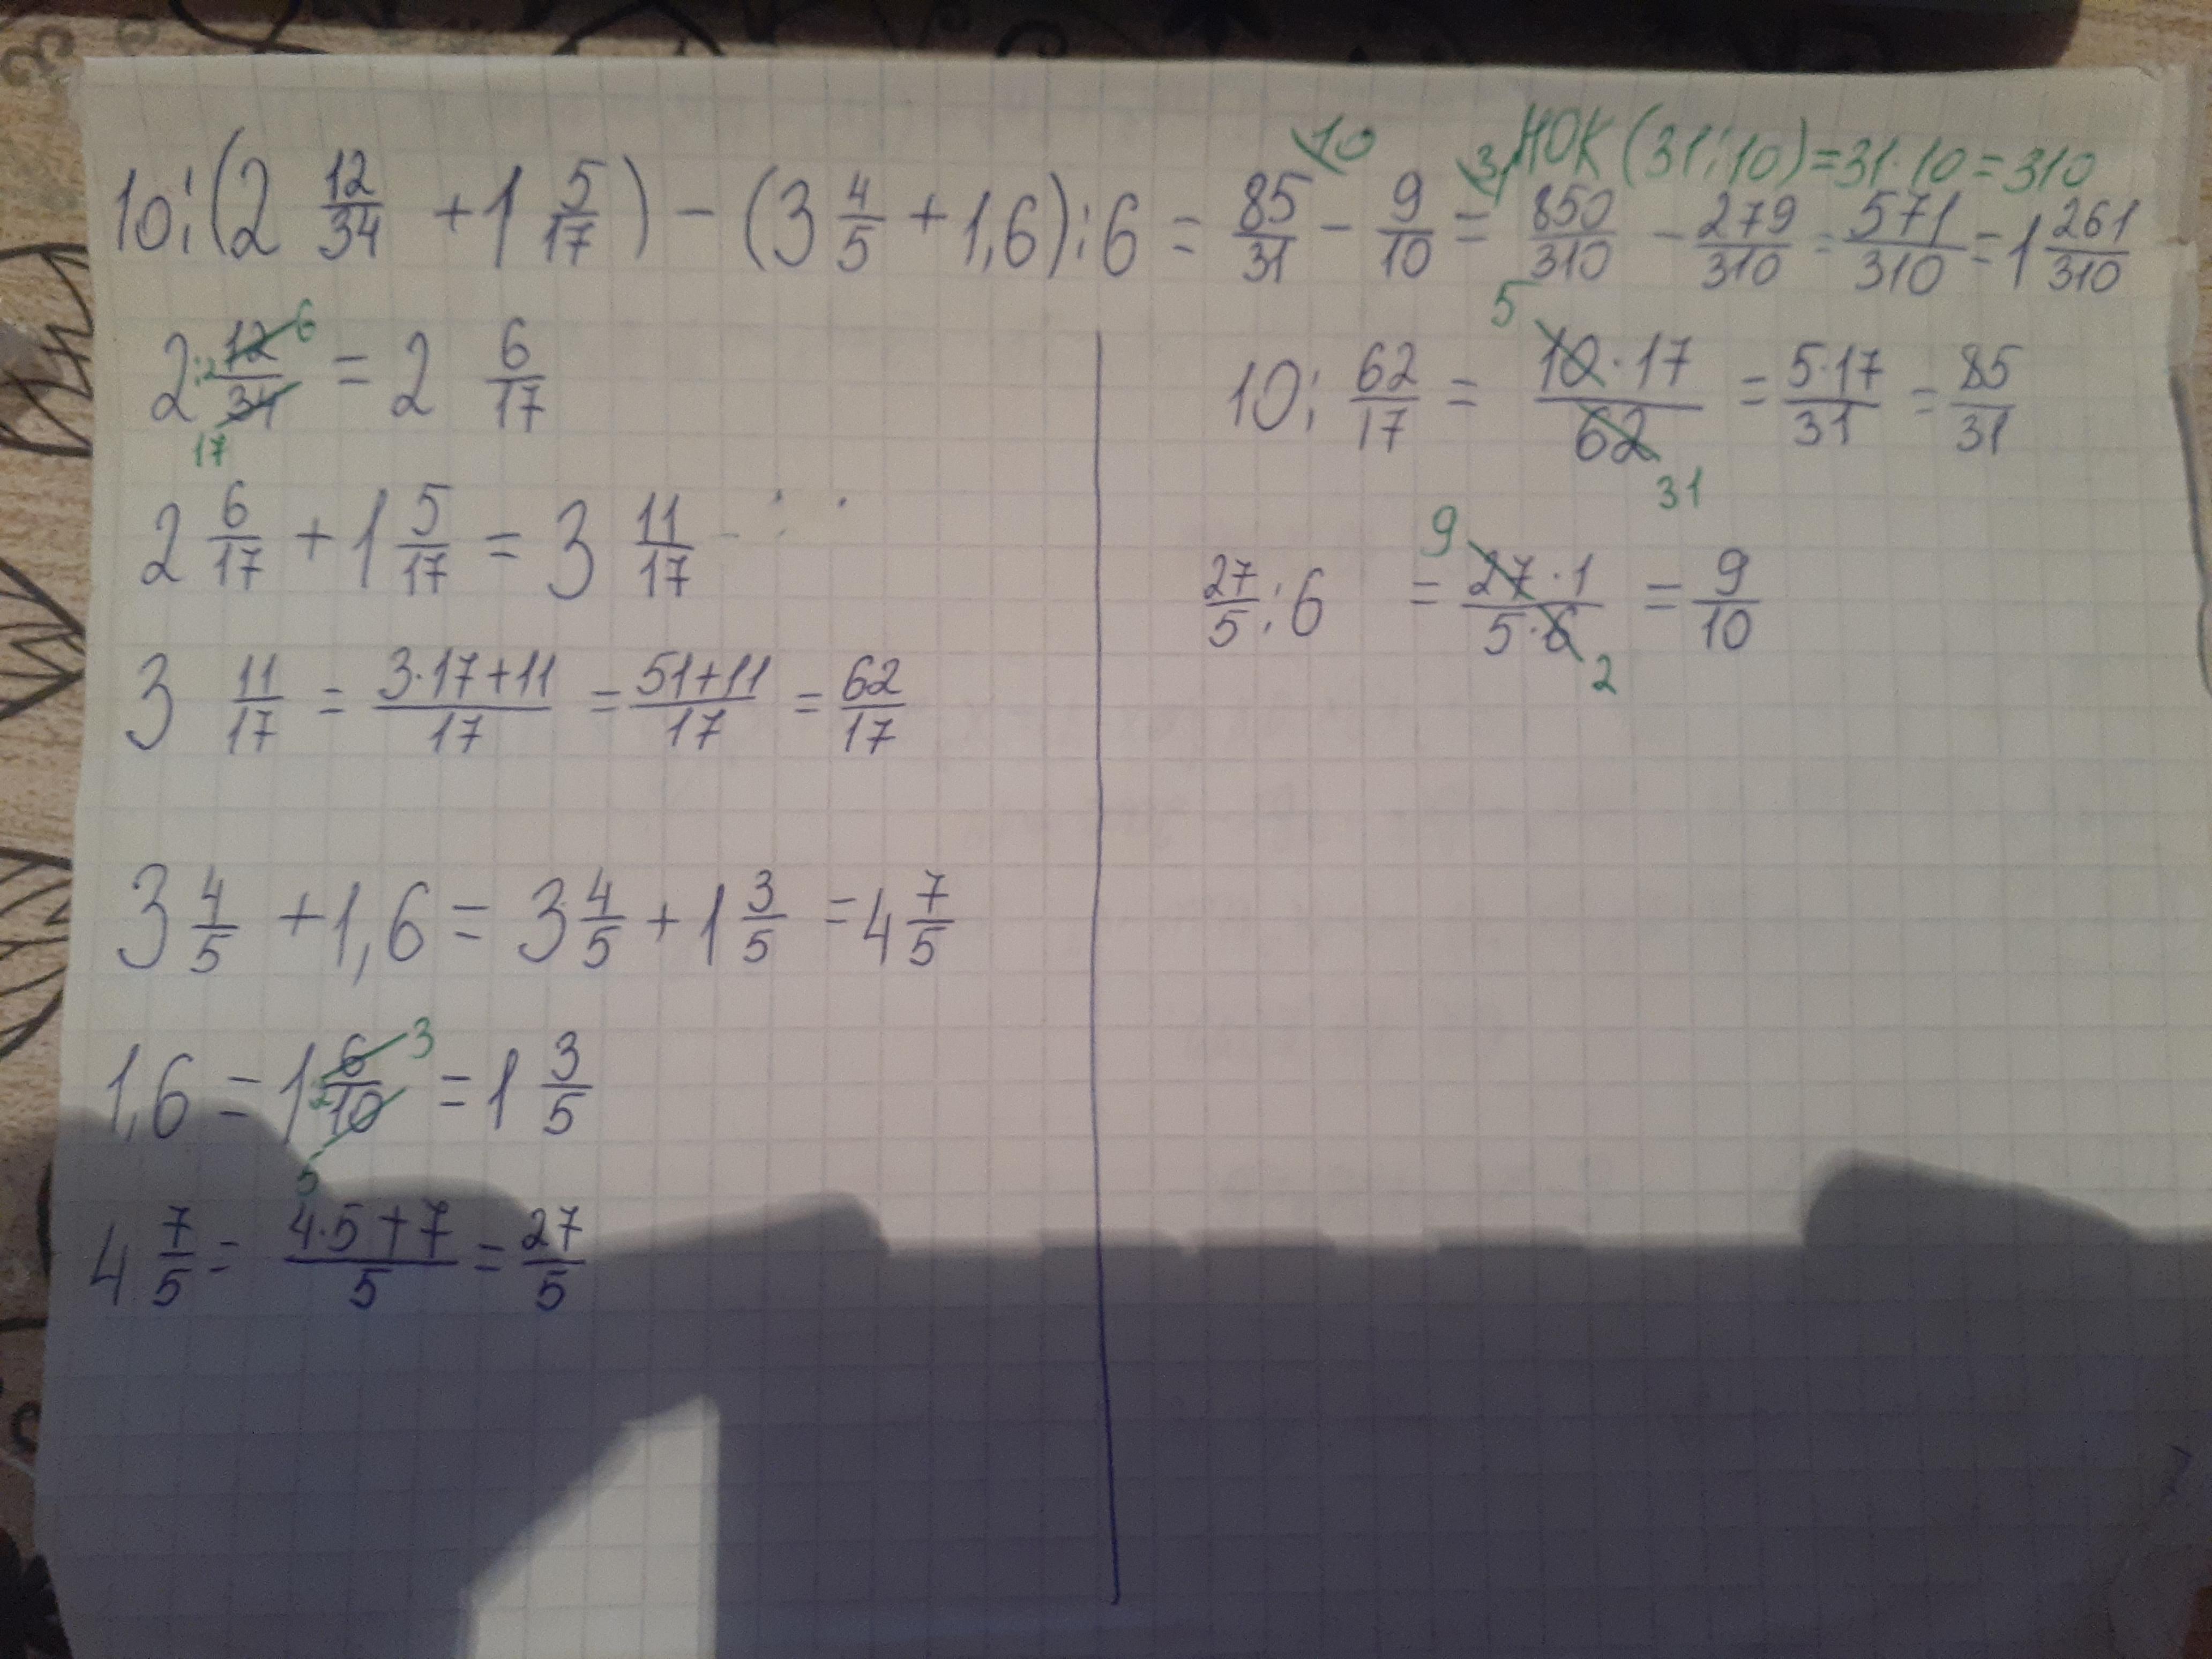 10 31 НОК (31;10)=31·10=310
10:(2 12/34 + 1 5/17) - (3 4/5 + 1,6):6 = 85/31 - 9/10 = 850/310 - 279/310 = 571/310 = 1 261/310
2 :2 12/34 6 17 = 2 6/17
2 6/17 + 1 5/17 = 3 11/17
3 11/17 = 3·17+11/17 = 51+11/17 = 62/17
3 4/5 + 1,6 = 3 4/5 + 1 3/5 = 4 7/5
1,6 = 1 6/10 3 2 5 = 1 3/5
4 7/5 = 4·5+7/5 = 27/5
10: 62/17 = 5 10·17/62 31 = 5·17/31 = 85/31
27/5 :6 = 9 27·1/5·6 2 = 9/10